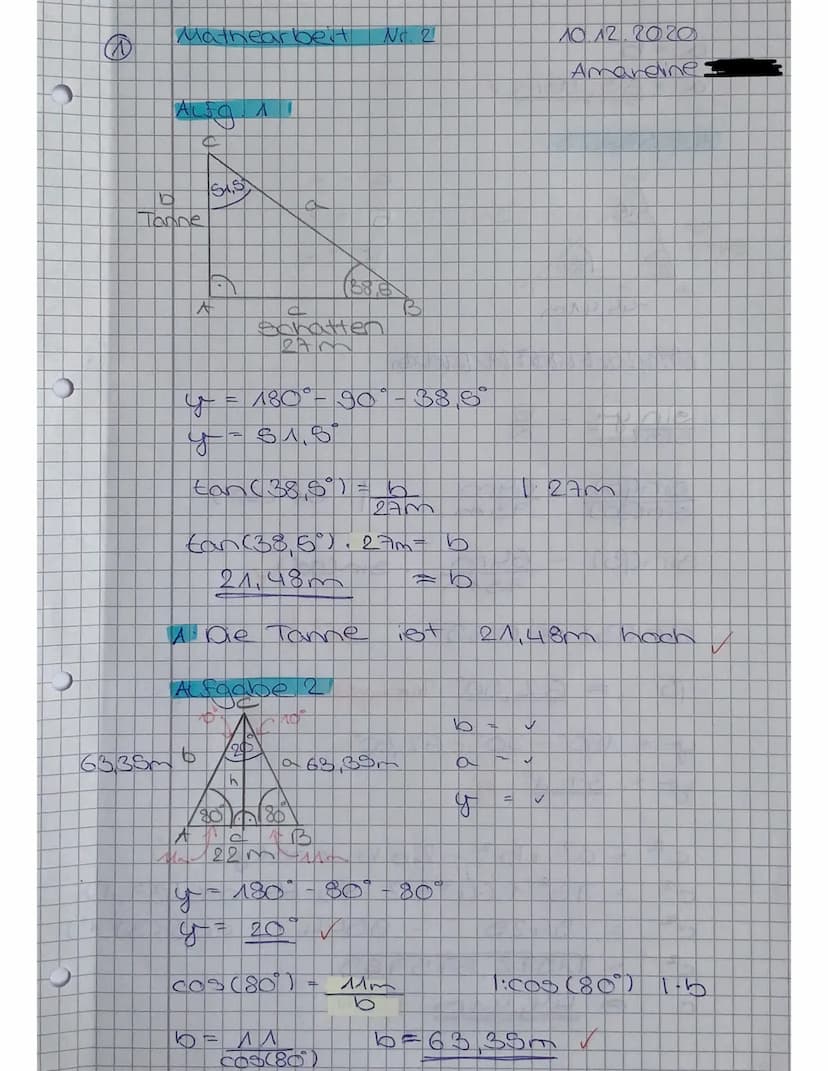 ① Mathearbeit Nr. 2 10.12.2020
Amandine
Aufg. 1
C
51,5°
b
Tanne
a
38,5
A c B
Schatten
27m
γ = 180° - 90° - 38,5°
γ = 51,5°
tan(38,5°) = b/27m | · 27m
tan(38,5°) · 27m = b
21,48m = b
A: Die Tanne ist 21,48m hoch ✓
Aufgabe 2
C
10° 10°
20°
63,35m b a 63,35m
h
80° 80°
A c B
11m 22m 11m
b = ✓
a = ✓
γ = ✓
γ = 180° - 80° - 80°
γ = 20° ✓
cos(80°) = 11m/b |:cos(80°) |·b
b = 11/cos(80°) b = 63,35m ✓